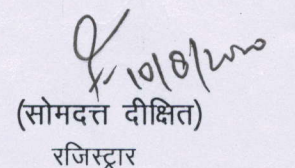 10/8/2020
(सोमदत्त दीक्षित)
रजिस्ट्रार